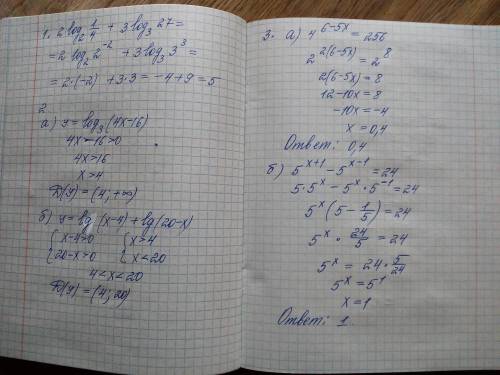 1. 2 log₂ 1/4 + 3 log₃ 27 =
= 2 log₂ 2⁻² + 3 log₃ 3³ =
= 2·(-2) + 3·3 = -4+9 = 5
2
а) y = log₃ (4x-16)
4x-16>0
4x>16
x>4
D(y) = (4; +∞)
б) y = lg (x-4) + lg(20-x)
{ x-4>0 { x>4
{ 20-x>0 { x<20
4<x<20
D(y) = (4; 20)
3. а) 4^(6-5x) = 256
2^(2(6-5x)) = 2⁸
2(6-5x) = 8
12-10x = 8
-10x = -4
x = 0,4
Ответ: 0,4
б) 5^(x+1) - 5^(x-1) = 24
5·5^x - 5^x · 5⁻¹ = 24
5^x (5 - 1/5) = 24
5^x · 24/5 = 24
5^x = 24 · 5/24
5^x = 5¹
x = 1
Ответ: 1